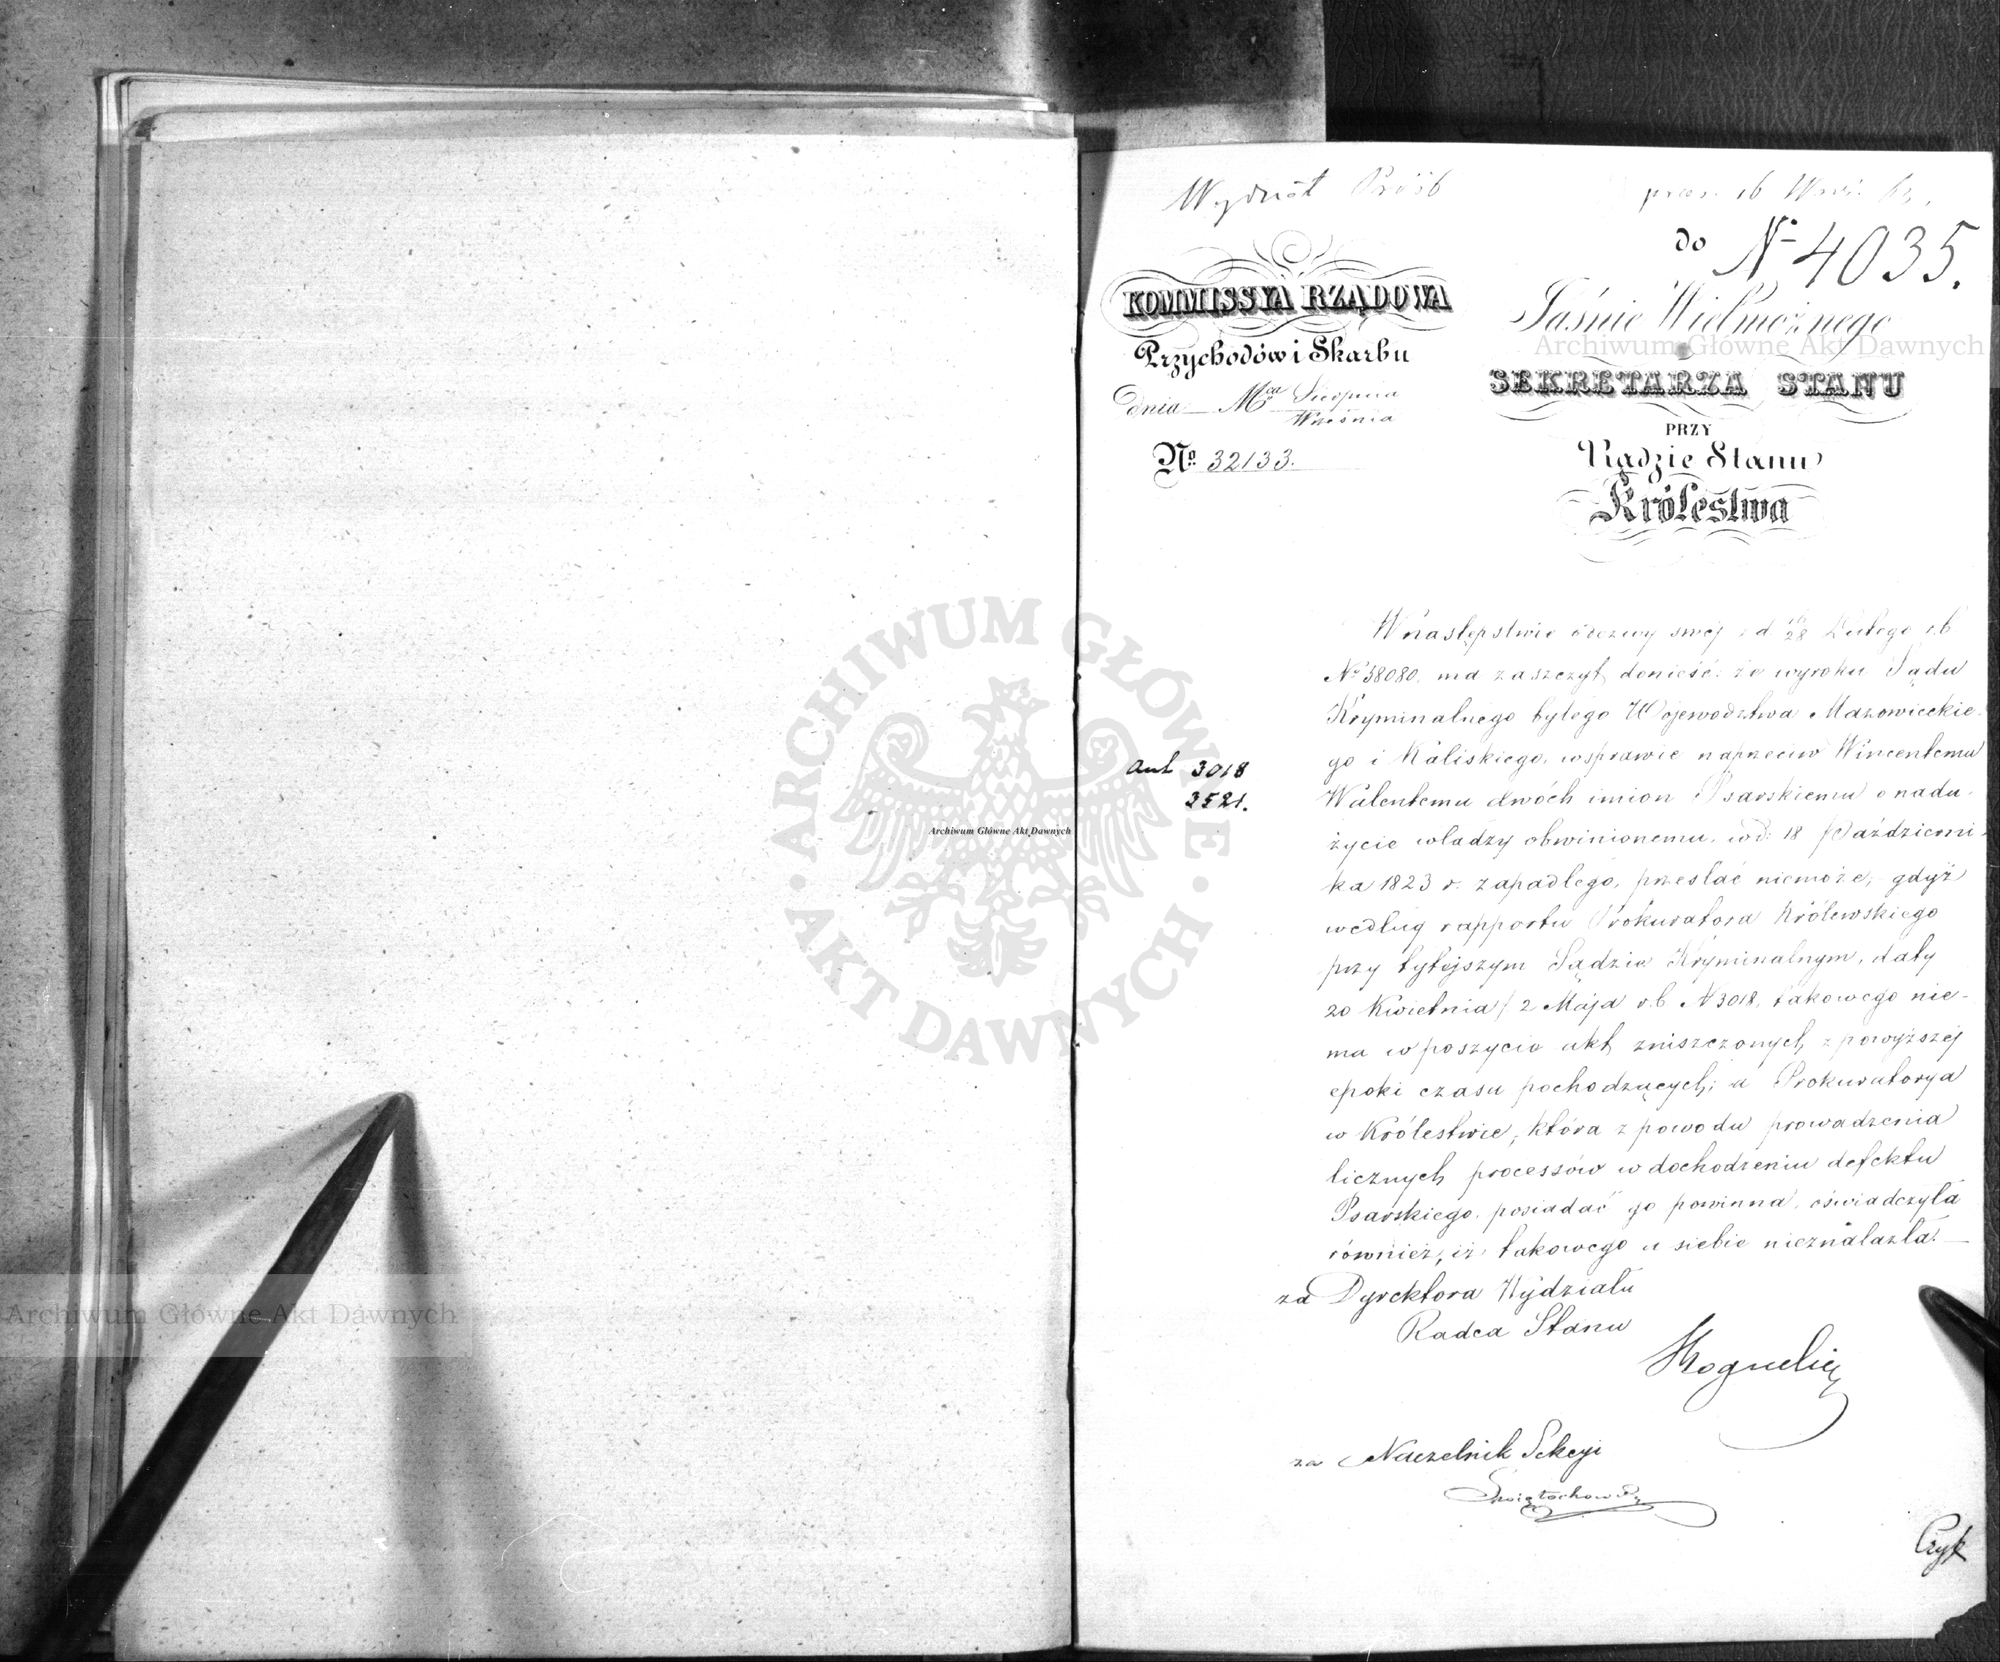 Wydział Próśb
do № 4035.
KOMMISSYA RZĄDOWA
Przychodów i Skarbu
dnia Mca Sierpnia
Września
No. 32133.
Jaśnie Wielmożnego
SEKRETARZA STANU
PRZY
Radzie Stanu
Królestwa
W następstwie odezwy swej z d 28 Lutego r.b
No 38080. ma zaszczyt donieść: że wyroku Sądu
Kryminalnego byłego Województwa Mazowieckie-
go i Kaliskiego, w sprawie naprzeciw Wincentemu
Walentemu dwóch imion Psarskiemu o nadu-
życie władzy obwinionemu, w d: 18 Październi-
ka 1823 r. zapadłego, przesłać niemoże, gdyż
według rapportu Prokuratora Królewskiego
przy tutejszym Sądzie Kryminalnym, daty
20 Kwietnia / 2 Maja r.b N 3018, takowego nie-
ma w poszycie akt zniszczonych z powyższej
epoki czasu pochodzących; a Prokuratorya
w Królestwie, która z powodu prowadzenia
licznych processów w dochodzeniu defektu
Psarskiego posiadać go powinna, oświadczyła
również, iż takowego u siebie nieznalazła.
ant 3018
2521.
za Dyrektora Wydziału
Radca Stanu
za Naczelnik Sekcyi
Świętochowski
Czyk
ARCHIWUM GŁÓWNE
AKT DAWNYCH
Archiwum Główne Akt Dawnych
Archiwum Główne Akt Dawnych
Archiwum Główne Akt Dawnych